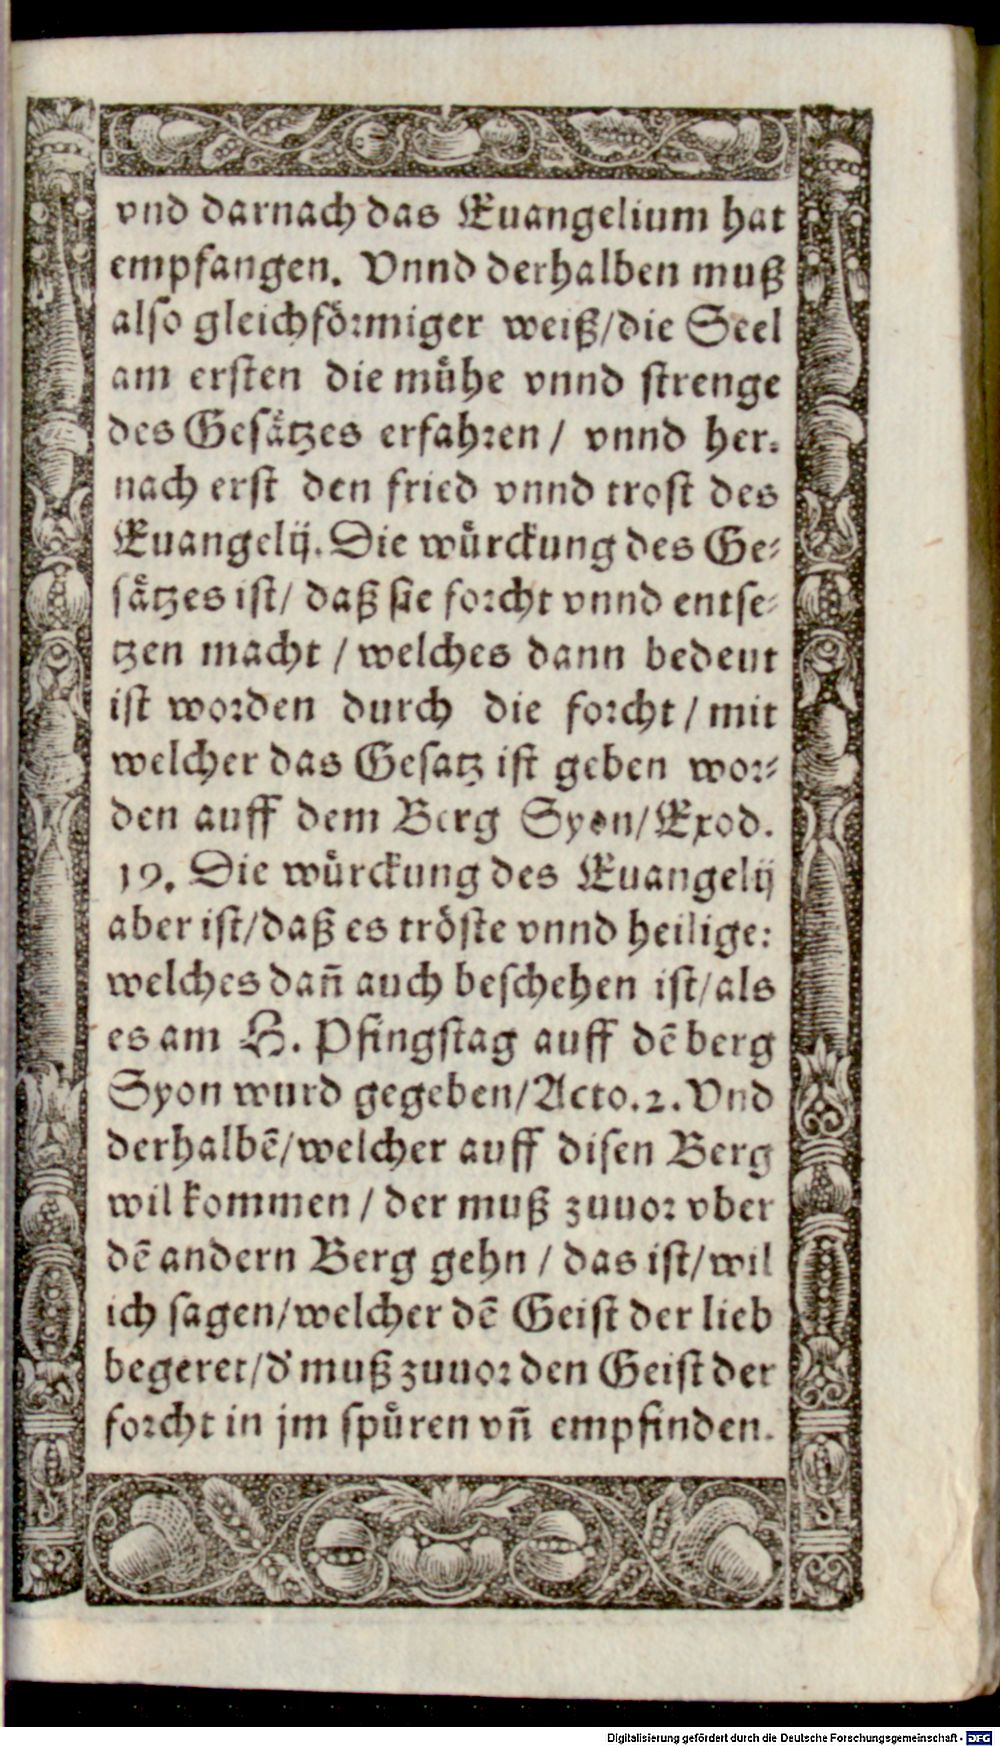 vnd darnach das Euangelium hat
empfangen. Vnnd derhalben muß
also gleichförmiger weiß/die Seel
am ersten die mühe vnnd strenge
des Gesätzes erfahren / vnnd her-
nach erst den fried vnnd trost des
Euangelij. Die würckung des Ge-
sätzes ist/ daß sie forcht vnnd entse-
tzen macht / welches dann bedeut
ist worden durch die forcht / mit
welcher das Gesatz ist geben wor-
den auff dem Berg Syon/Exod.
19. Die würckung des Euangelij
aber ist/daß es tröste vnnd heilige:
welches dan̄ auch beschehen ist/als
es am H. Pfingstag auff dē berg
Syon wurd gegeben/Acto.2. Vnd
derhalbē/welcher auff disen Berg
wil kommen / der muß zuuor vber
dē andern Berg gehn / das ist/wil
ich sagen/welcher dē Geist der lieb
begeret/d' muß zuuor den Geist der
forcht in jm spüren vn̄ empfinden.
Digitalisierung gefördert durch die Deutsche Forschungsgemeinschaft - DFG